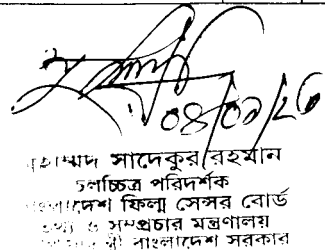 ০৪/০৯/২৩
মোহাম্মদ সাদেকুর রহমান
চলচ্চিত্র পরিদর্শক
বাংলাদেশ ফিল্ম সেন্সর বোর্ড
তথ্য ও সম্প্রচার মন্ত্রণালয়
বাংলাদেশ সরকার